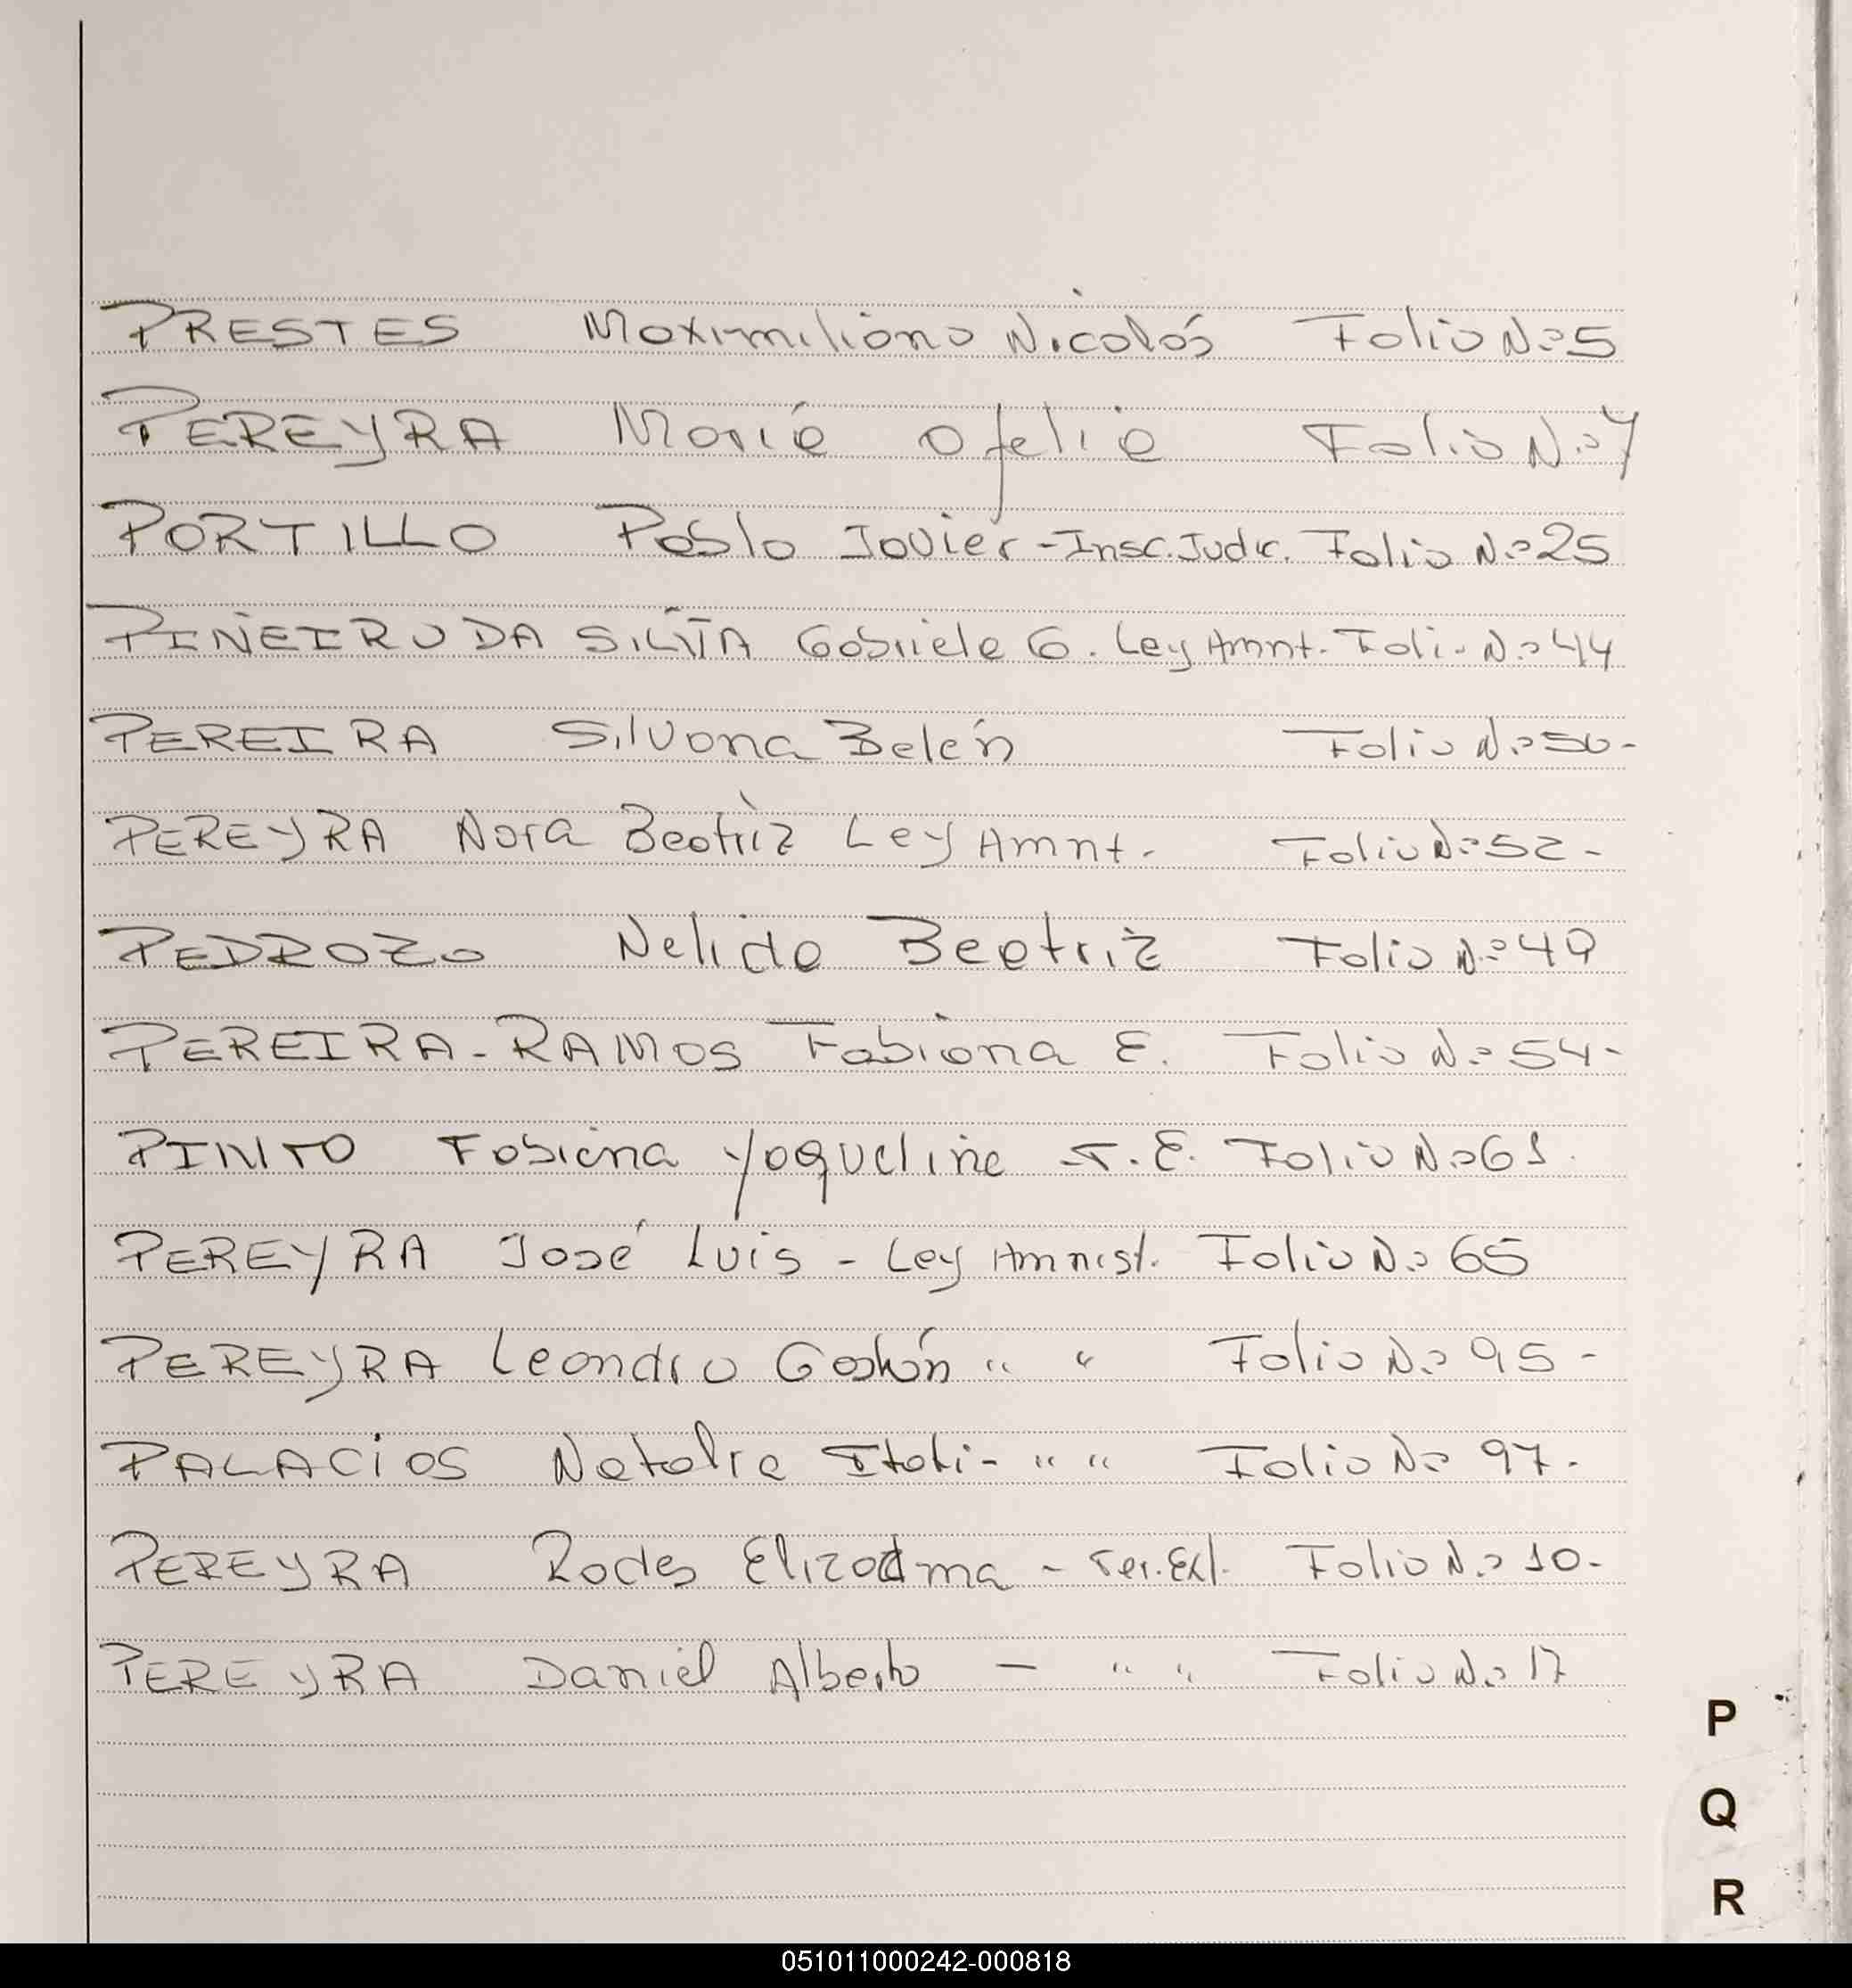 PRESTES Maximiliano Nicolás Folio Nº 5
PEREYRA María Ofelia Folio Nº 7
PORTILLO Pablo Javier - Insc. Judic. Folio Nº 25
PIÑEIRO DA SILVA Gabriela G. Ley Amnt. Foli. Nº 44
PEREIRA Silvana Belén Folio Nº 50-
PEREYRA Nora Beatriz Ley Amnt. Folio Nº 52-
PEDROZO Nelida Beatriz Folio Nº 49
PEREIRA-RAMOS Fabiana E. Folio Nº 54-
PINTO Fabiana Yaqueline T.E. Folio Nº 61.
PEREYRA José Luis - Ley Amnist. Folio Nº 65
PEREYRA Leandro Gastón " " Folio Nº 95-
PALACIOS Natalia Itati- " " Folio Nº 97.
PEREYRA - Ter. Ext. Folio Nº 10-
PEREYRA Daniel Alberto - " " Folio Nº 17
P
Q
R
051011000242-000818